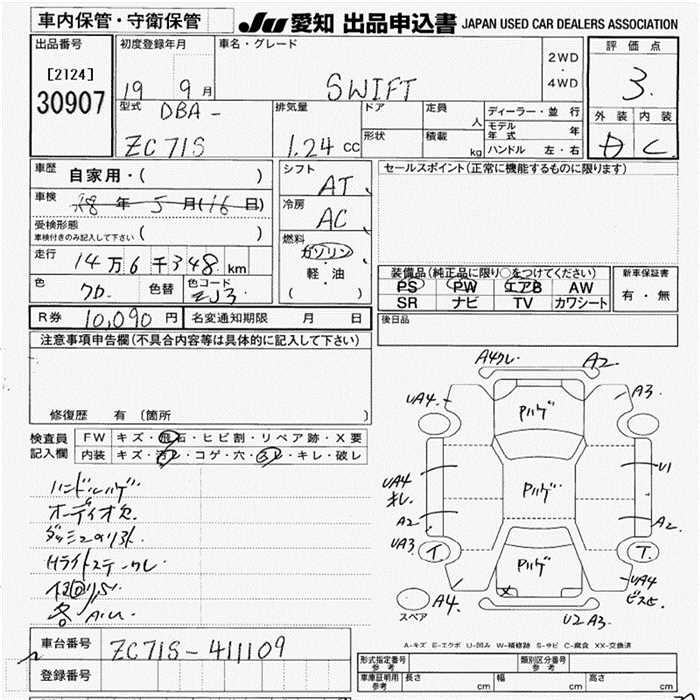 車内保管・守衛保管 JU 愛知 出品申込書 JAPAN USED CAR DEALERS ASSOCIATION
出品番号 初度登録年月 車名・グレード 評価点
[2124] 19 9月 SWIFT 2WD・4WD 3.
30907 型式 DBA- 排気量 ドア 定員 人 ディーラー・並行 外装 内装
ZC71S 1.24 cc 形状 積載 kg モデル年式 年 D C.
ハンドル 左・右
車歴 自家用・( ) シフト AT セールスポイント(正常に機能するものに限ります)
車検 年 5月(16日) 冷房 AC
受検形態
車検付きのみ記入して下さい ( ) 燃料
走行 14万6千348km ガソリン・軽・油 ( )
装備品(純正品に限り○をつけてください) 新車保証書
色 色替 色コード ZJ3 PS PW エアB AW 有・無
SR ナビ TV カワシート
R券 10,090円 名変通知期限 月 日 後日品
注意事項申告欄(不具合内容等は具体的に記入して下さい)
修復歴 有 (箇所 )
検査員記入欄 FW キズ・飛石・ヒビ割・リペア跡・X要
内装 キズ・汚レ・コゲ・穴・スレ・キレ・破レ
ハンドルハゲ
オーディオ欠.
Hライトステークレ
A4クレ A2.
UA4. A3
Pハゲ
UA4 キレ U1
Pハゲ
A2 A2.
UA3 イ. T.
Pハゲ
UA4 ビスヒ
A4. U2 A3
スペア
A-キズ E-エクボ U-凹み W-補修跡 S-サビ C-腐食 XX-交換済
車台番号 ZC71S-411109
登録番号
形式指定番号 参考 類別区分番号 参考
車庫証明用 参考 長さ cm 幅 cm 高さ cm